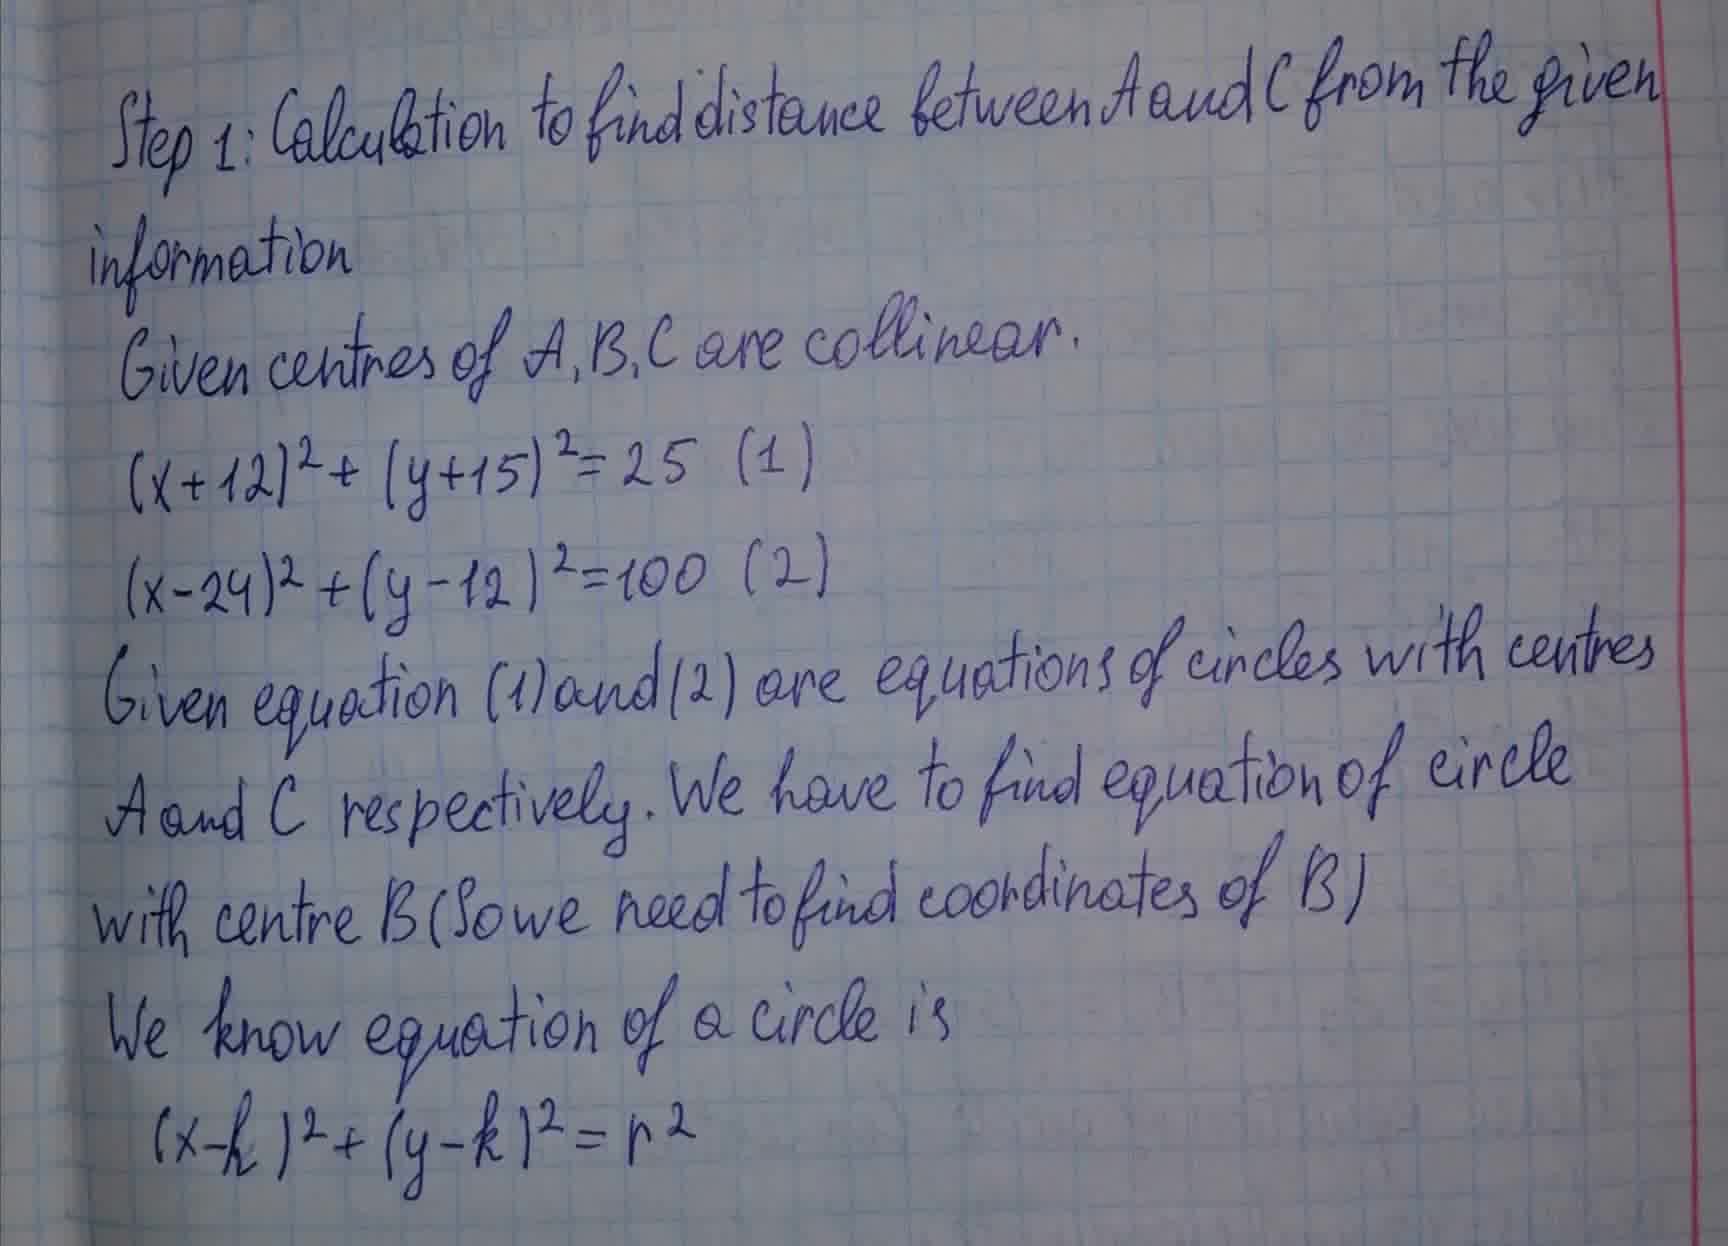 Step 1: Calculation to find distance between A and C from the given
information
Given centres of A, B, C are collinear.
(x+12)²+(y+15)²=25 (1)
(x-24)²+(y-12)²=100 (2)
Given equation (1) and (2) are equations of circles with centres
A and C respectively. We have to find equation of circle
with centre B (So we need to find coordinates of B)
We know equation of a circle is
(x-h)²+(y-k)²=r²